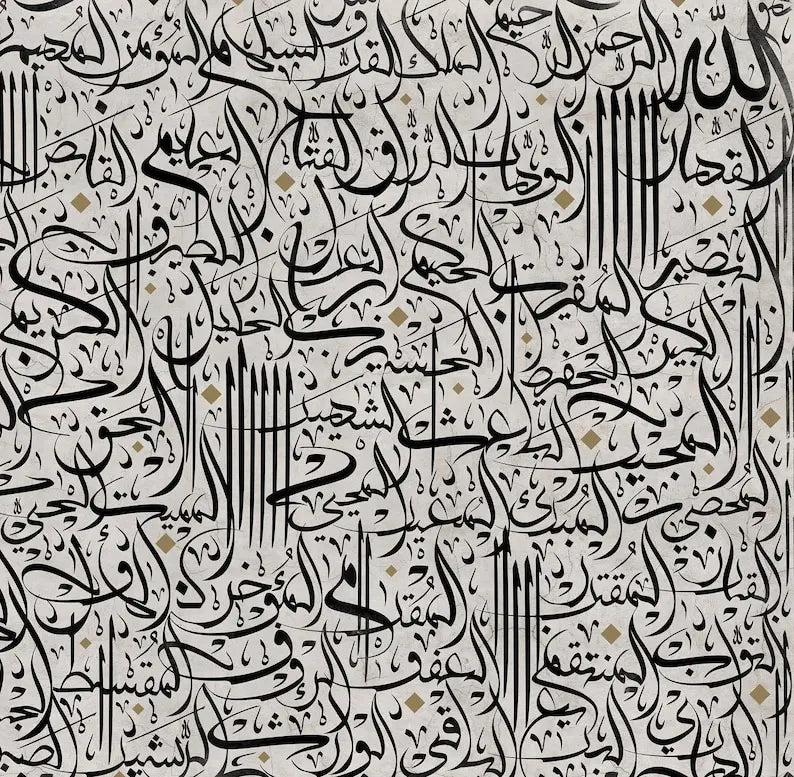 الله الرحمن الرحيم الملك القدوس السلام المؤمن المهيمن
القهار الوهاب الرزاق الفتاح العليم القابض
البصير المقيت الحكيم العدل اللطيف
الكبير الحفيظ الحسيب الجليل الكريم
المجيب الباعث الشهيد الحق
المحصي المبدئ المعيد المحيي المميت الحي
القادر المقتدر المقدم المؤخر
التواب المنتقم العفو الرؤوف المقسط
الباقي الوارث الرشيد